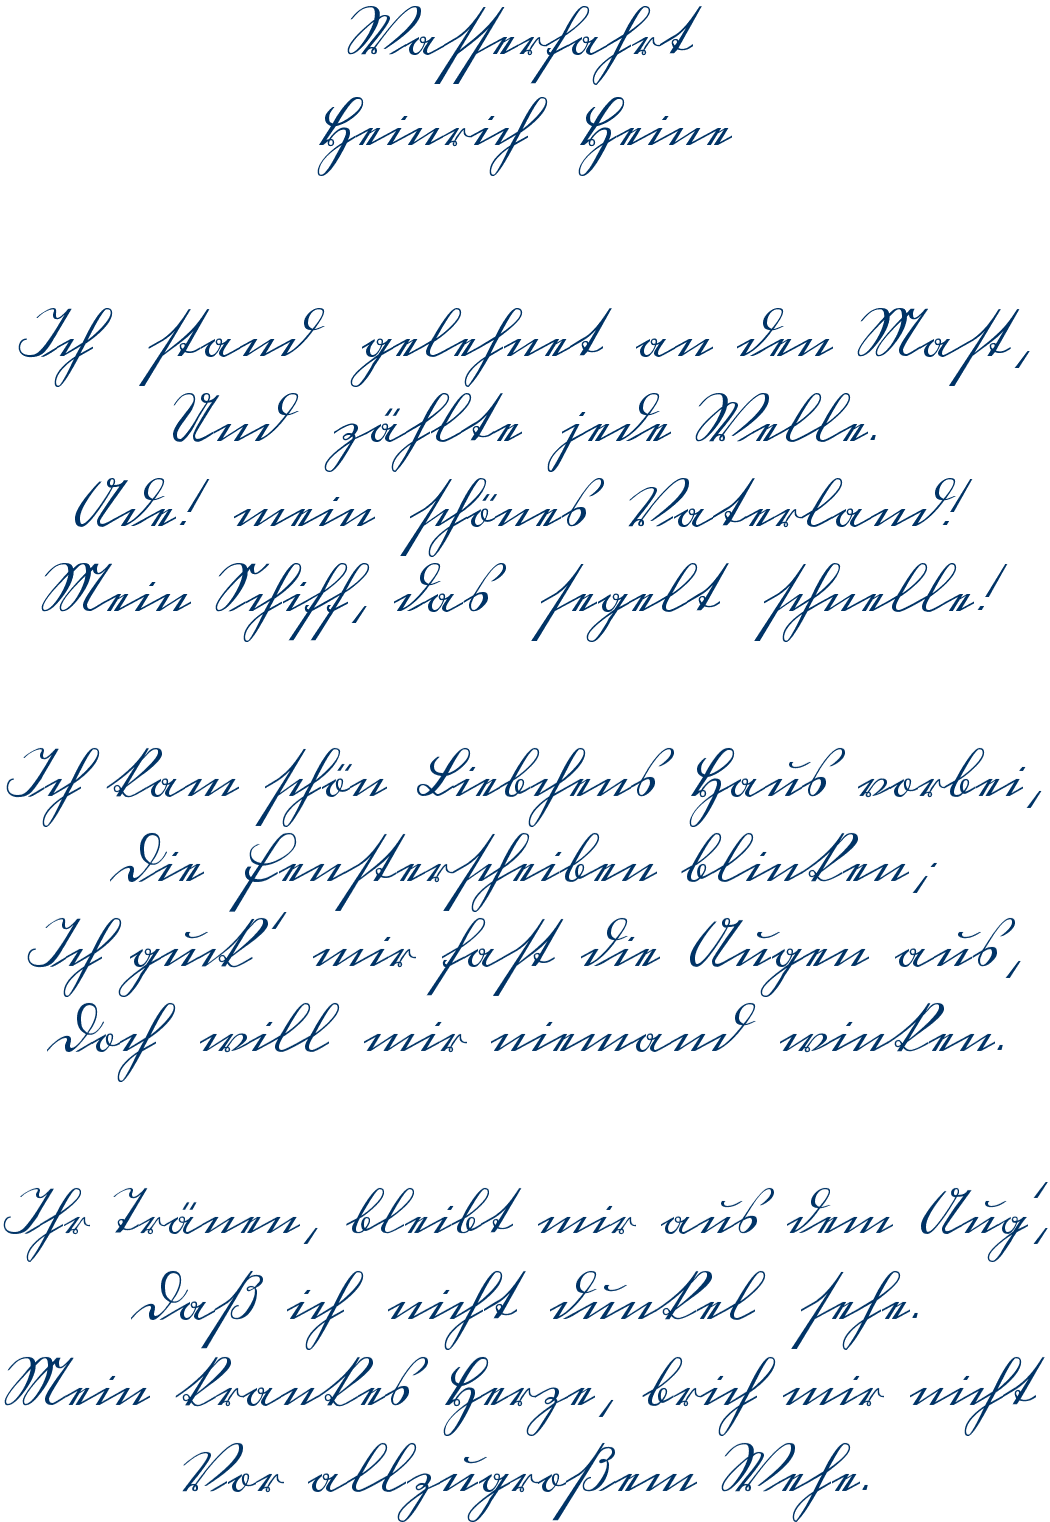 Wasserfahrt
Heinrich Heine
Ich stand gelehnet an den Mast,
Und zählte jede Welle.
Ade! mein schönes Vaterland!
Mein Schiff, das segelt schnelle!
Ich kam schön Liebchens Haus vorbei,
Die Fensterscheiben blinken;
Ich guck' mir fast die Augen aus,
Doch will mir niemand winken.
Ihr Tränen, bleibt mir aus dem Aug',
Daß ich nicht dunkel sehe.
Mein krankes Herze, brich mir nicht
Vor allzugroßem Wehe.